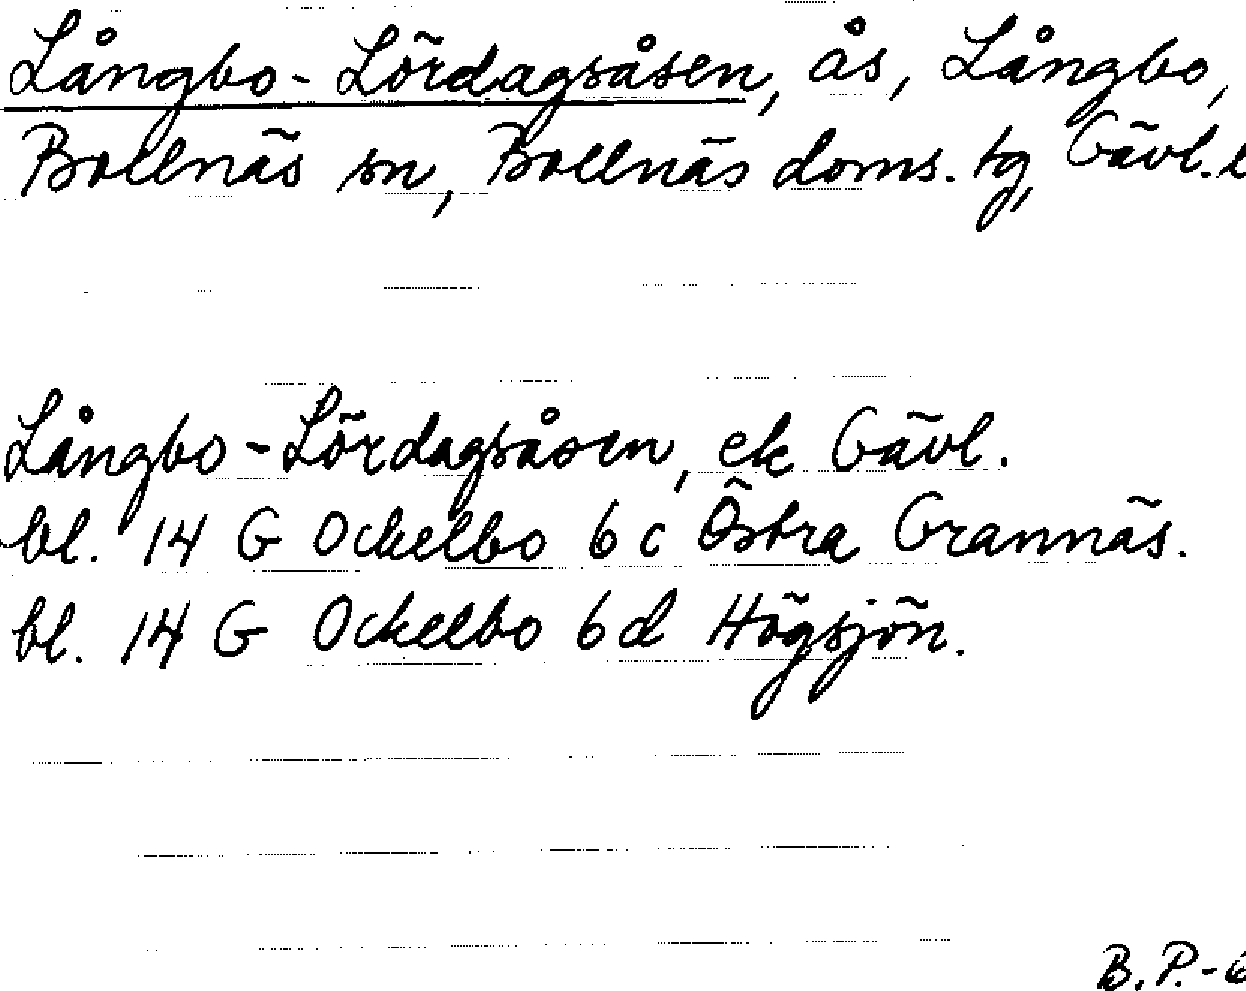 Långbo-Lördagsåsen, ås, Långbo,
Bollnäs sn, Bollnäs doms. tg, Gävl. l
Långbo-Lördagsåsen, ek Gävl.
bl. 14 G Ockelbo 6 c Östra Grannäs.
bl. 14 G Ockelbo 6 d Högsjön.
B.P.-6